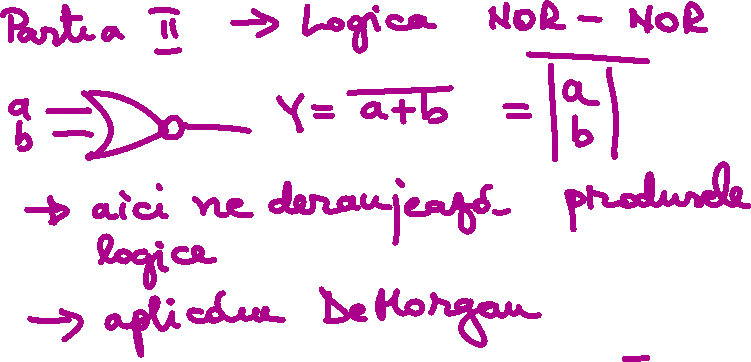 Partea II → Logica NOR - NOR
a
b
Y = \overline{a+b} = \overline{\begin{vmatrix} a \\ b \end{vmatrix}}
→ aici ne deranjează produsele
logice
→ aplicăm DeMorgan